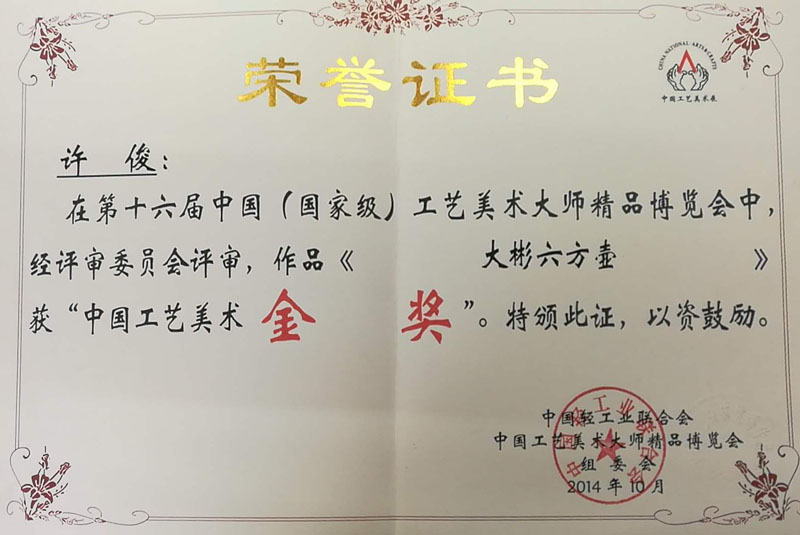 荣誉证书
CHINA NATIONAL ARTS&CRAFTS
中国工艺美术展
许 俊：
在第十六届中国（国家级）工艺美术大师精品博览会中，
经评审委员会评审，作品《 大彬六方壶 》
获“中国工艺美术 金 奖”。特颁此证，以资鼓励。
中国轻工业联合会
中国工艺美术大师精品博览会
组委会
2014年10月
中国轻工业联合会